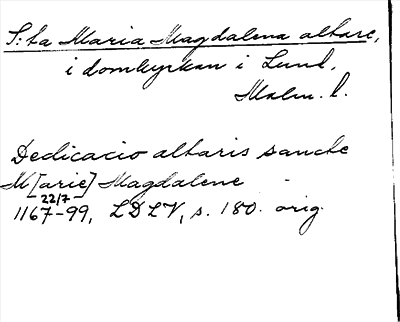 S:ta Maria Magdalena altare,
i domkyrkan i Lund.
Malm. l.
Dedicacio altaris sancte
M[arie] Magdalene
22/7
1167-99, LDLV, s. 180. orig.